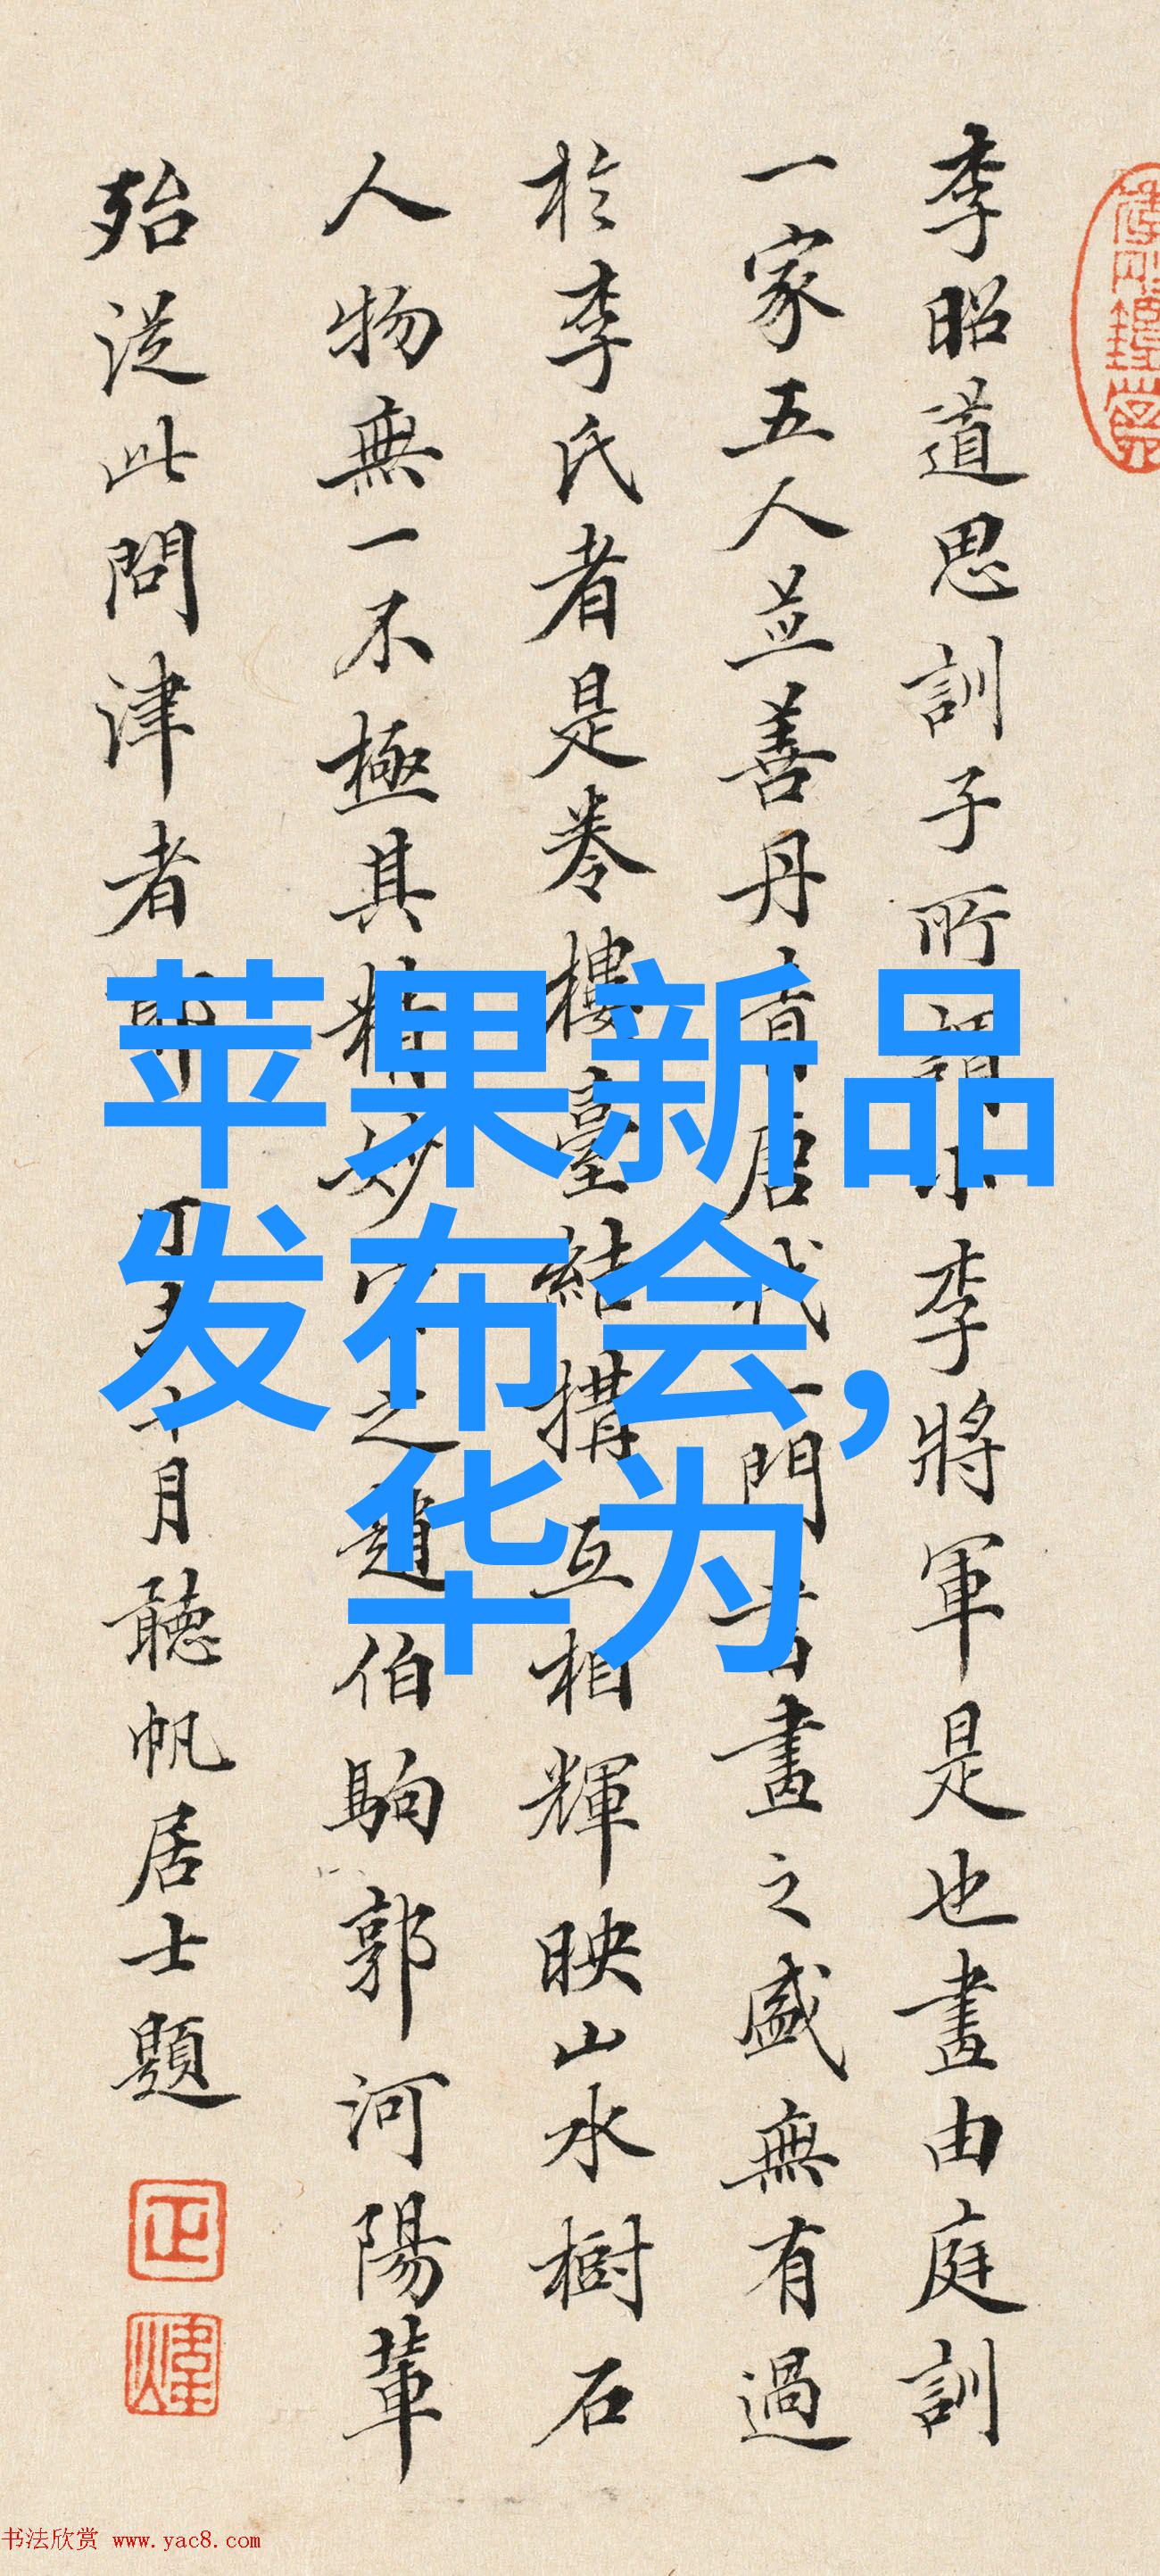 李昭道思訓子所謂小李將軍是也畫由庭訓
一家五人並善丹青唐代一門書畫之盛無有過
於李氏者是卷樓臺結構互相輝映山水樹石
人物無一不極其精妙宋之趙伯駒郭河陽輩
殆從此問津者耶 十月聽帆居士題
苹果新品
发布会,
华为
书法欣赏 www.yac8.com